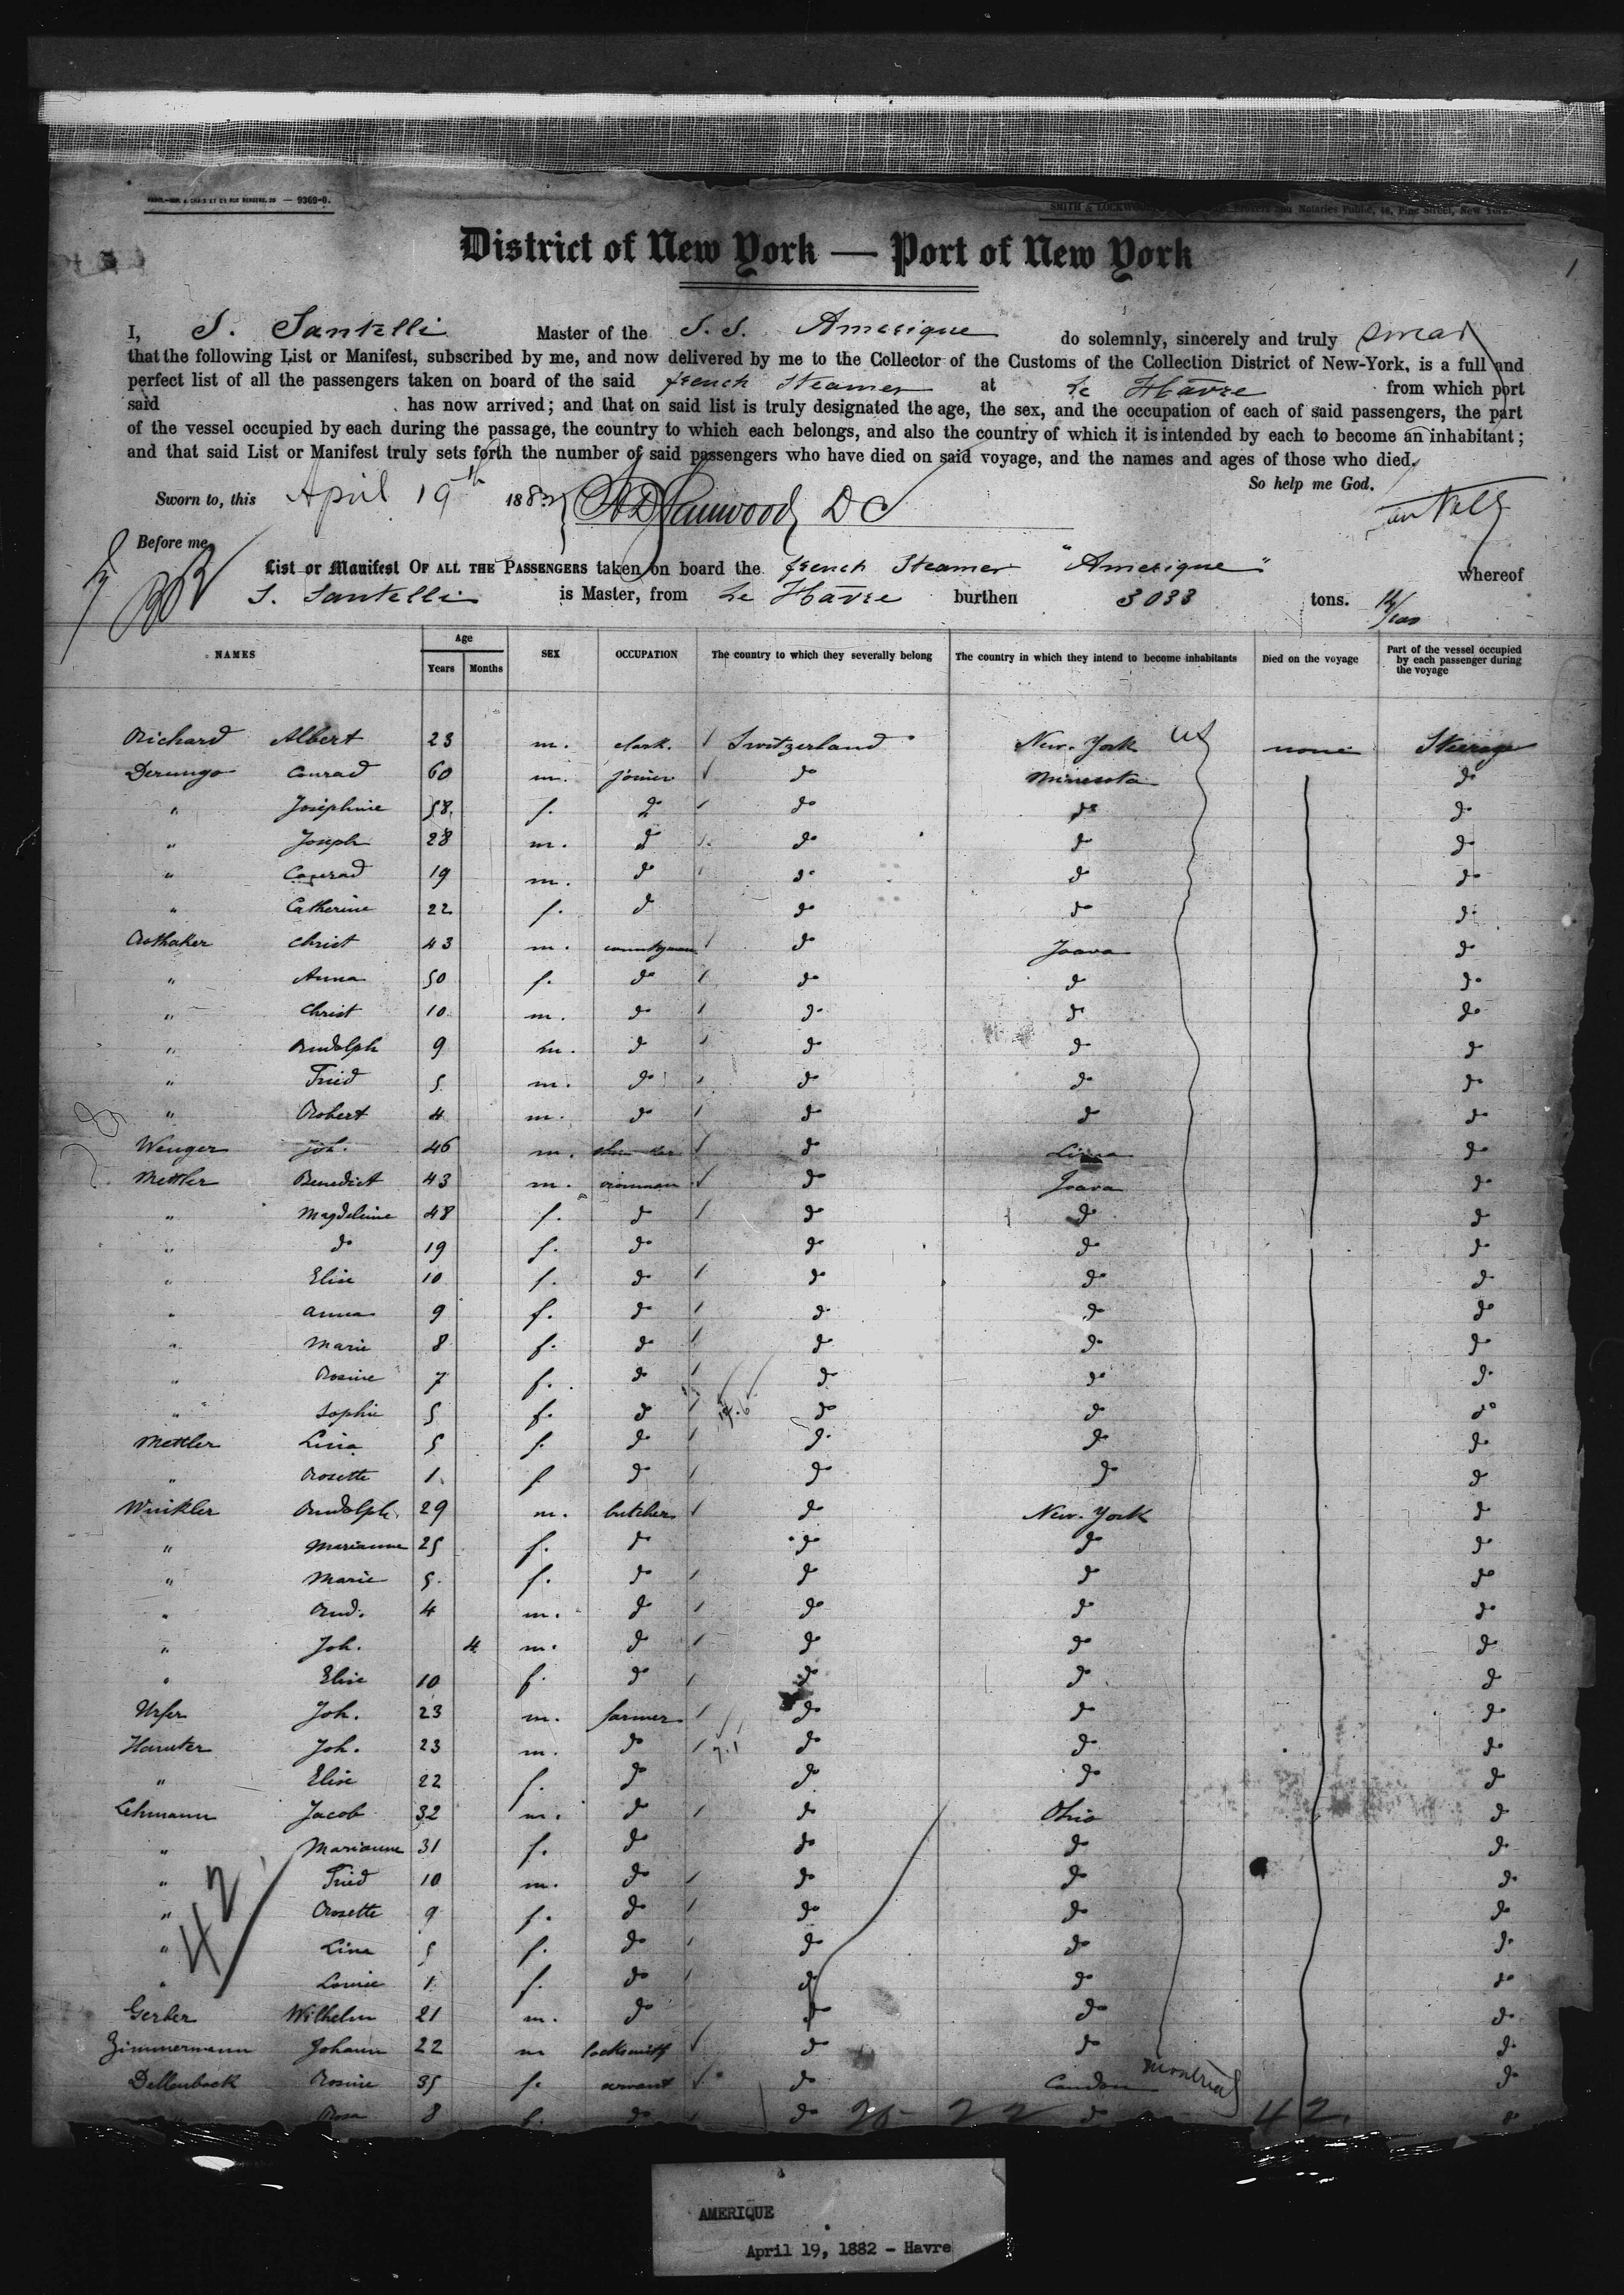 PARIS.—IMP. A. CHAIX ET Cie RUE BERGERE, 20 — 9369-0.
SMITH & LOCKWOOD, Brokers and Notaries Public, 48, Pine Street, New York.
District of New York — Port of New York
1
I, S. Santelli Master of the S. S. Amerique do solemnly, sincerely and truly swear
that the following List or Manifest, subscribed by me, and now delivered by me to the Collector of the Customs of the Collection District of New-York, is a full and
perfect list of all the passengers taken on board of the said french Steamer at Le Havre from which port
said has now arrived; and that on said list is truly designated the age, the sex, and the occupation of each of said passengers, the part
of the vessel occupied by each during the passage, the country to which each belongs, and also the country of which it is intended by each to become an inhabitant;
and that said List or Manifest truly sets forth the number of said passengers who have died on said voyage, and the names and ages of those who died.
So help me God.
Sworn to, this April 19th 1882 D C
Before me,
List or Manifest OF ALL THE PASSENGERS taken on board the french Steamer "Amerique" whereof
S. Santelli is Master, from Le Havre burthen 3033 tons. 14/100
NAMES Age Years Months SEX OCCUPATION The country to which they severally belong The country in which they intend to become inhabitants Died on the voyage Part of the vessel occupied by each passenger during the voyage
Richard Albert 23 m. clark. Switzerland New-York US none Steerage
Derungo Conrad 60 m. joiner do Minnesota do
" Josephine 58 f. do do do do
" Joseph 28 m. do do do do
" Conrad 19 m. do do do do
" Catherine 22 f. do do do do
Rothaker Christ 43 m. countryman do Joava do
" Anna 50 f. do do do do
" Christ 10 m. do do do do
" Rudolph 9 m. do do do do
" Fried 5 m. do do do do
" Robert 4 m. do do do do
Wenger Joh. 46 m. do Lima do
Mettler Benedict 43 m. do Joava do
" Magdeleine 48 f. do do do do
" do 19 f. do do do do
" Elise 10 f. do do do do
" Anna 9 f. do do do do
" Marie 8 f. do do do do
" Rosine 7 f. do do do do
" Sophie 5 f. do do do do
Mettler Lina 5 f. do do do do
" Rosette 1 f do do do do
Winkler Rudolph 29 m. butcher do New-York do
" Marianne 25 f. do do do do
" Marie 5 f. do do do do
" Rud. 4 m. do do do do
" Joh. 4 m. do do do do
" Elise 10 f. do do do do
Urfer Joh. 23 m. farmer do do do
Hamter Joh. 23 m. do do do do
" Elise 22 f. do do do do
Lehmann Jacob 32 m. do do Ohio do
" Marianne 31 f. do do do do
" Fried 10 m. do do do do
" Rosette 9 f. do do do do
" Lina 5 f. do do do do
" Louise 1 f. do do do do
42
Gerber Wilhelm 21 m. do do do do
Zimmermann Johann 22 m locksmith do do do
Dellenback Rosine 35 f. servant do Candon Montreal do
Rosa 8 f. do do 20 - 22 do 42 do
AMERIQUE
April 19, 1882 - Havre